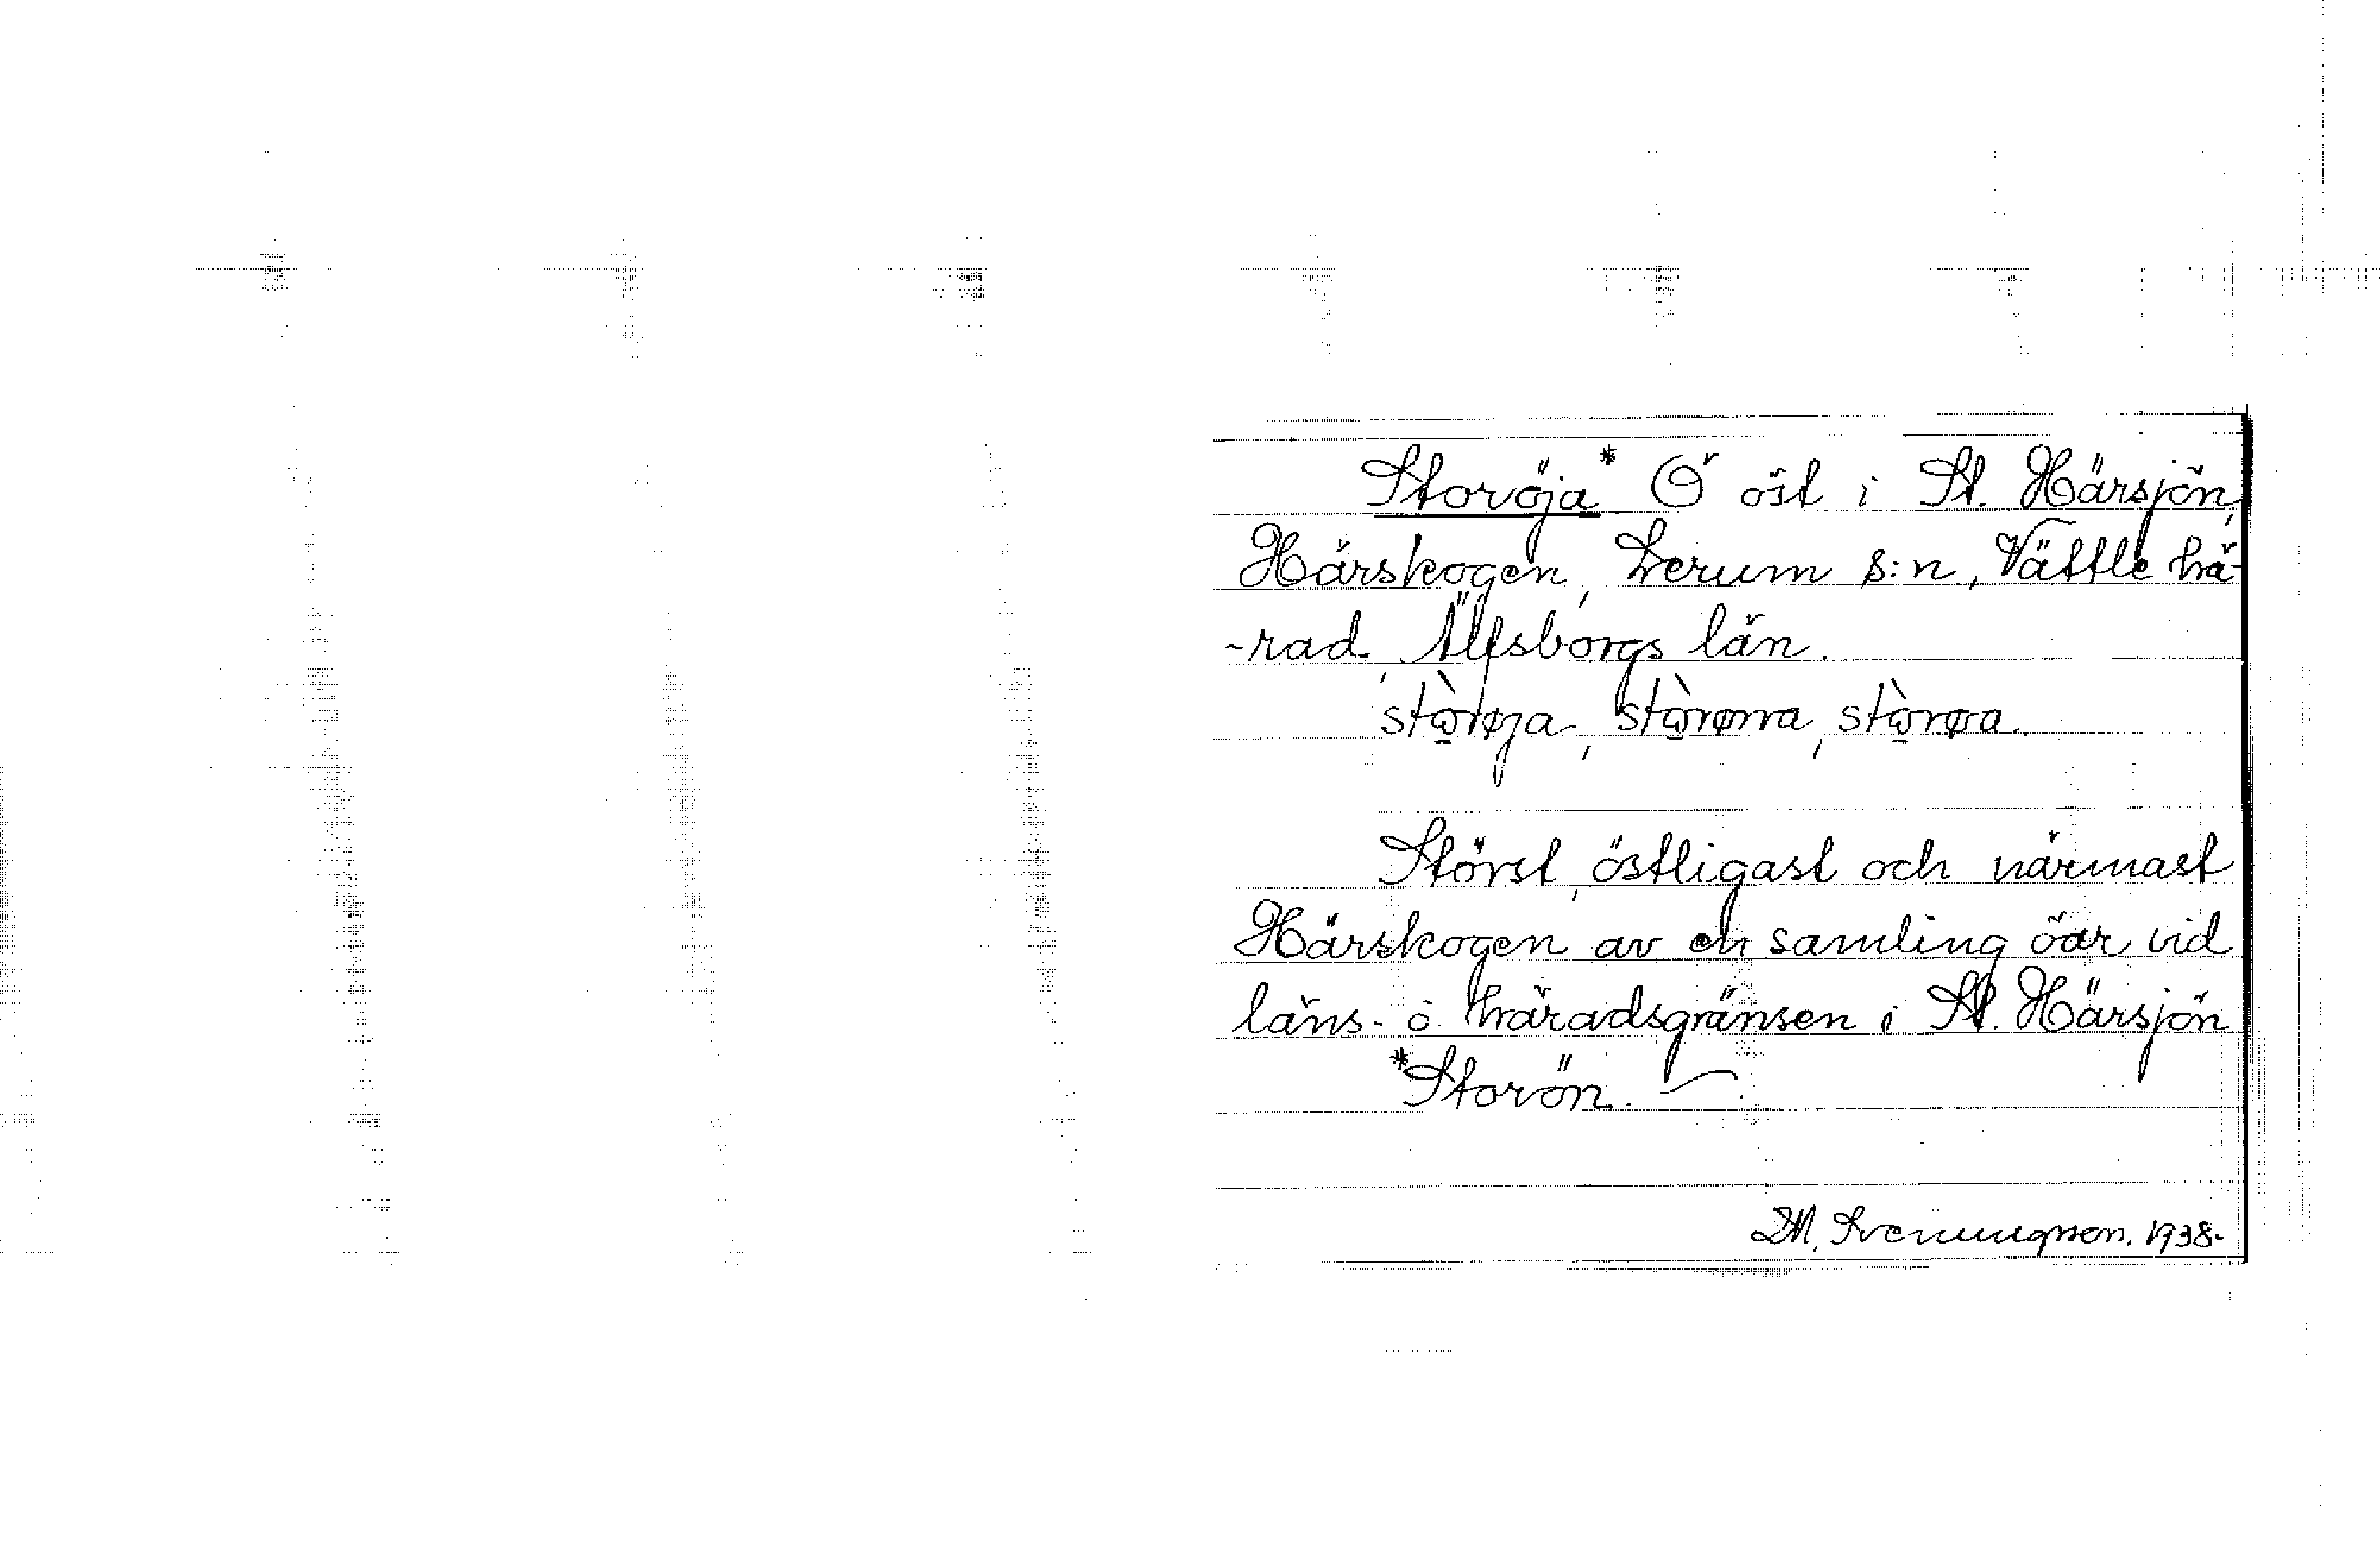 Storöja* Ö öst i St. Härsjön,
Härskogen, Lerum s:n, Vättle hä-
-rad, Älfsborgs län.
Störst, östligast och närmast
Härskogen av en samling öar vid
läns- o häradsgränsen i St. Härsjön
*Storön.
1938.